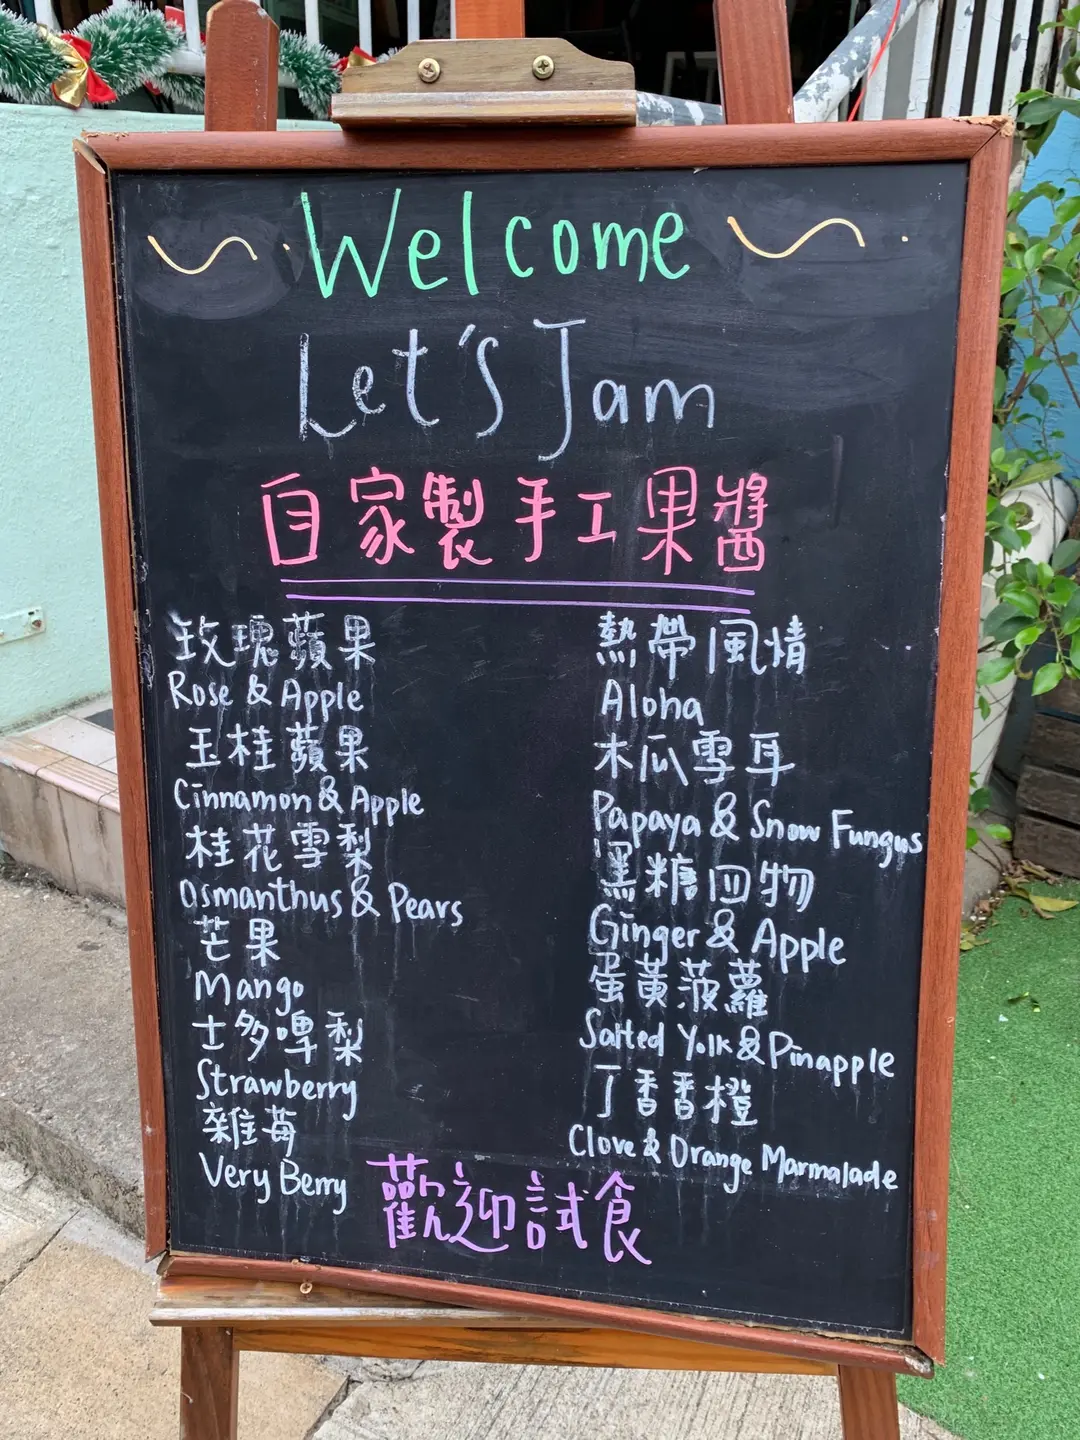 Welcome
Let's Jam
自家製手工果醬
玫瑰蘋果
Rose & Apple
玉桂蘋果
Cinnamon & Apple
桂花雪梨
Osmanthus & Pears
芒果
Mango
士多啤梨
Strawberry
雜莓
Very Berry
熱帶風情
Aloha
木瓜雪耳
Papaya & Snow Fungus
黑糖四物
Ginger & Apple
蛋黃菠蘿
Salted Yolk & Pinapple
丁香香橙
Clove & Orange Marmalade
歡迎試食